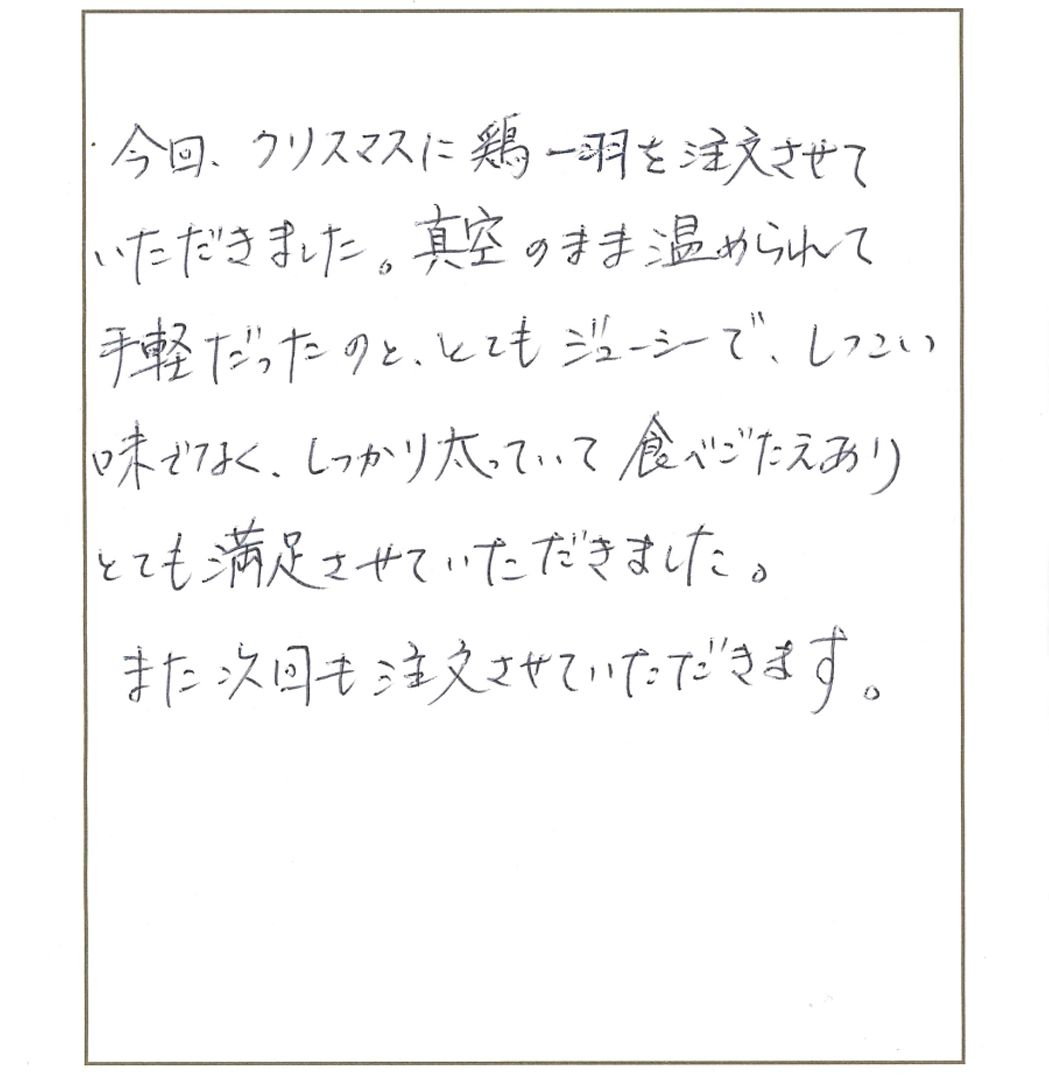 今回、クリスマスに鶏一羽を注文させて
いただきました。真空のまま温められて
手軽だったのと、とてもジューシーで、しつこい
味でなく、しっかり太っていて食べごたえあり
とても満足させていただきました。
また次回も注文させていただきます。